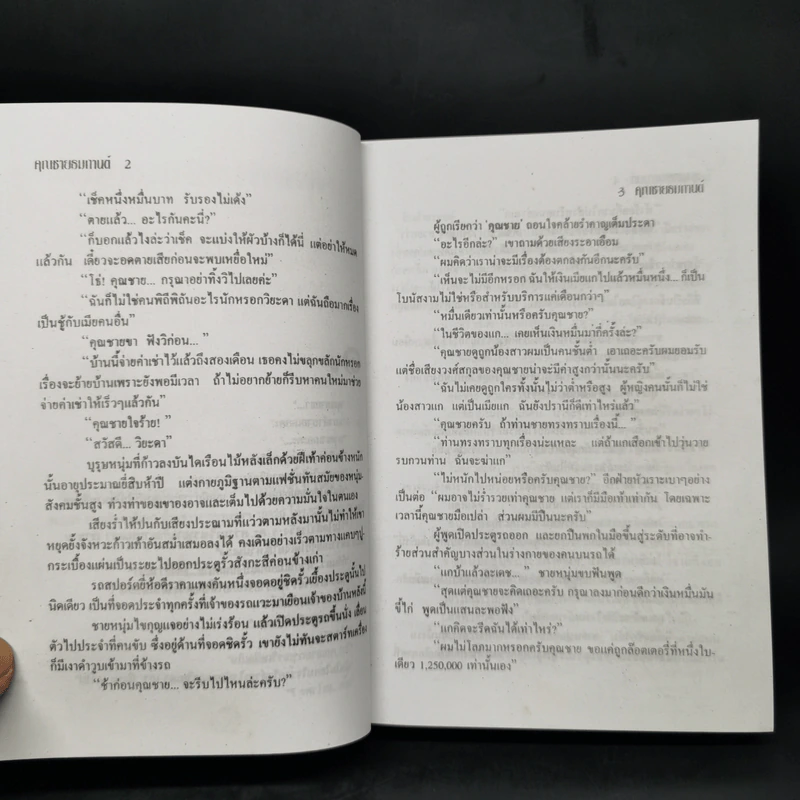 คุณชายธมกานต์ 2
“เช็คหนึ่งหมื่นบาท รับรองไม่เด้ง”
“ตายแล้ว... อะไรกันคะนี่?”
“ก็บอกแล้วไงล่ะว่าเช็ค จะแบ่งให้ผัวบ้างก็ได้นี่ แต่อย่าให้หมด
แล้วกัน เดี๋ยวจะอดตายเสียก่อนจะพบเหยื่อใหม่”
“โธ่! คุณชาย... กรุณาอย่าทิ้งวิไปเลยค่ะ”
“ฉันก็ไม่ใช่คนพิถีพิถันอะไรนักหรอกวิยะดา แต่ฉันถือมากเรื่อง
เป็นชู้กับเมียคนอื่น”
“คุณชายขา ฟังวิก่อน...”
“บ้านนี้จ่ายค่าเช่าไว้แล้วถึงสองเดือน เธอคงไม่ขลุกขลักนักหรอก
เรื่องจะย้ายบ้านเพราะยังพอมีเวลา ถ้าไม่อยากย้ายก็รีบหาคนใหม่มาช่วย
จ่ายค่าเช่าให้เร็วๆแล้วกัน”
“คุณชายใจร้าย!”
“สวัสดี... วิยะดา”
บุรุษหนุ่มที่ก้าวลงบันไดเรือนไม้หลังเล็กด้วยฝีเท้าค่อนข้างหนัก
นั้นอายุประมาณยี่สิบห้าปี แต่งกายภูมิฐานตามแฟชั่นทันสมัยของหนุ่ม
สังคมชั้นสูง ท่วงท่าของเขาองอาจและเต็มไปด้วยความมั่นใจในตนเอง
เสียงร่ำไห้ปนกับเสียงประณามที่แว่วตามหลังมานั้นไม่ทำให้เขา
หยุดยั้งจังหวะก้าวเท้าอันสม่ำเสมอลงได้ คงเดินอย่างเร็วตามทางแคบๆปู
กระเบื้องแผ่นเป็นระยะไปออกประตูรั้วสังกะสีค่อนข้างเก่า
รถสปอร์ตยี่ห้อดีราคาแพงคันหนึ่งจอดอยู่ชิดรั้วเยื้องประตูนั้นไป
นิดเดียว เป็นที่จอดประจำทุกครั้งที่เจ้าของรถแวะมาเยือนเจ้าของบ้านหลังนี้
ชายหนุ่มไขกุญแจอย่างไม่เร่งร้อน แล้วเปิดประตูรถขึ้นนั่ง เลื่อน
ตัวไปประจำที่คนขับ ซึ่งอยู่ด้านที่จอดชิดรั้ว เขายังไม่ทันจะสตาร์ทเครื่อง
ก็มีเงาดำวูบเข้ามาที่ข้างรถ
“ช้าก่อนคุณชาย... จะรีบไปไหนล่ะครับ?”
3 คุณชายธมกานต์
ผู้ถูกเรียกว่า ‘คุณชาย’ ถอนใจคล้ายรำคาญเต็มประดา
“อะไรอีกล่ะ?” เขาถามด้วยเสียงระอาเอือม
“ผมคิดว่าเราน่าจะมีเรื่องต้องตกลงกันอีกนะครับ”
“เห็นจะไม่มีอีกหรอก ฉันให้เงินเมียแกไปแล้วหมื่นหนึ่ง... ก็เป็น
โบนัสงามไม่ใช่หรือสำหรับบริการแค่เดือนกว่าๆ”
“หมื่นเดียวเท่านั้นหรือครับคุณชาย?”
“ในชีวิตของแก... เคยเห็นเงินหมื่นมากี่ครั้งล่ะ?”
“คุณชายดูถูกน้องสาวผมเป็นคนชั้นต่ำ เอาเถอะครับผมยอมรับ
แต่ชื่อเสียงวงศ์สกุลของคุณชายน่าจะมีค่าสูงกว่านั้นนะครับ”
“ฉันไม่เคยดูถูกใครทั้งนั้นไม่ว่าต่ำหรือสูง ผู้หญิงคนนั้นก็ไม่ใช่
น้องสาวแก แต่เป็นเมียแก ฉันยังปรานีก็ดีเท่าไหร่แล้ว”
“คุณชายครับ ถ้าท่านชายทรงทราบเรื่องนี้...”
“ท่านทรงทราบทุกเรื่องน่ะแหละ แต่ถ้าแกเสือกเข้าไปวุ่นวาย
รบกวนท่าน ฉันจะฆ่าแก”
“ไม่หนักไปหน่อยหรือครับคุณชาย?” อีกฝ่ายหัวเราะเบาๆอย่าง
เป็นต่อ “ผมอาจไม่ร่ำรวยเท่าคุณชาย แต่เราก็มีมือเท้าเท่ากัน โดยเฉพาะ
เวลานี้คุณชายมือเปล่า ส่วนผมมีปืนนะครับ”
ผู้พูดเปิดประตูรถออก และยกปืนพกในมือขึ้นสู่ระดับที่อาจทำ-
ร้ายส่วนสำคัญบางส่วนในร่างกายของคนบนรถได้
“แกบ้าแล้วละเดช...” ชายหนุ่มขบฟันพูด
“สุดแต่คุณชายจะคิดเถอะครับ กรุณาลงมาก่อนดีกว่าเงินหมื่นมัน
ขี้ไก่ พูดเป็นแสนละพอฟัง”
“แกคิดจะรีดฉันได้เท่าไหร่?”
“ผมไม่โลภมากหรอกครับคุณชาย ขอแค่ถูกล็อตเตอรี่ที่หนึ่งใบ-
เดียว 1,250,000 เท่านั้นเอง”